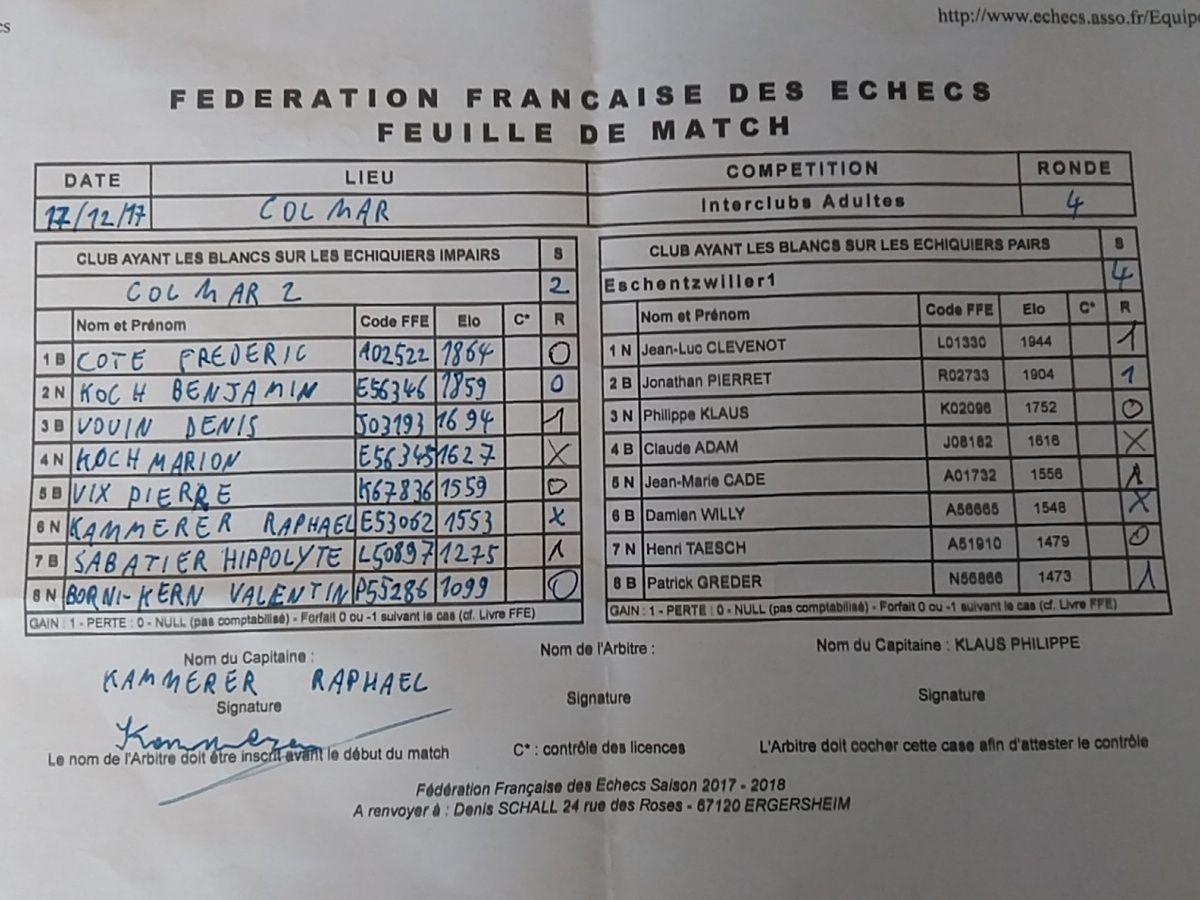 cs http://www.echecs.asso.fr/Equipe
FEDERATION FRANCAISE DES ECHECS
FEUILLE DE MATCH
DATE LIEU COMPETITION RONDE
17/12/17 COLMAR Interclubs Adultes 4
CLUB AYANT LES BLANCS SUR LES ECHIQUIERS IMPAIRS S CLUB AYANT LES BLANCS SUR LES ECHIQUIERS PAIRS S
COLMAR 2 2 Eschentzwiller1 4
Nom et Prénom Code FFE Elo C* R Nom et Prénom Code FFE Elo C* R
1 B COTE FREDERIC A02522 1864 0 1 N Jean-Luc CLEVENOT L01330 1944 1
2 N KOCH BENJAMIN E56346 1859 0 2 B Jonathan PIERRET R02733 1904 1
3 B VOUIN DENIS J03193 1694 1 3 N Philippe KLAUS K02096 1752 0
4 N KOCH MARION E56345 1627 X 4 B Claude ADAM J08182 1616 X
5 B VIX PIERRE K67836 1559 0 5 N Jean-Marie CADE A01732 1556 1
6 N KAMMERER RAPHAEL E53062 1553 X 6 B Damien WILLY A56665 1548 X
7 B SABATIER HIPPOLYTE L50897 1275 1 7 N Henri TAESCH A51910 1479 0
8 N BORNI-KERN VALENTIN P55286 1099 0 8 B Patrick GREDER N56866 1473 1
GAIN : 1 - PERTE : 0 - NULL (pas comptabilisé) - Forfait 0 ou -1 suivant le cas (cf. Livre FFE) GAIN : 1 - PERTE : 0 - NULL (pas comptabilisé) - Forfait 0 ou -1 suivant le cas (cf. Livre FFE)
Nom du Capitaine : Nom de l'Arbitre : Nom du Capitaine : KLAUS PHILIPPE
KAMMERER RAPHAEL
Signature Signature Signature
Kammerer
Le nom de l'Arbitre doit être inscrit avant le début du match C* : contrôle des licences L'Arbitre doit cocher cette case afin d'attester le contrôle
Fédération Française des Echecs Saison 2017 - 2018
A renvoyer à : Denis SCHALL 24 rue des Roses - 67120 ERGERSHEIM